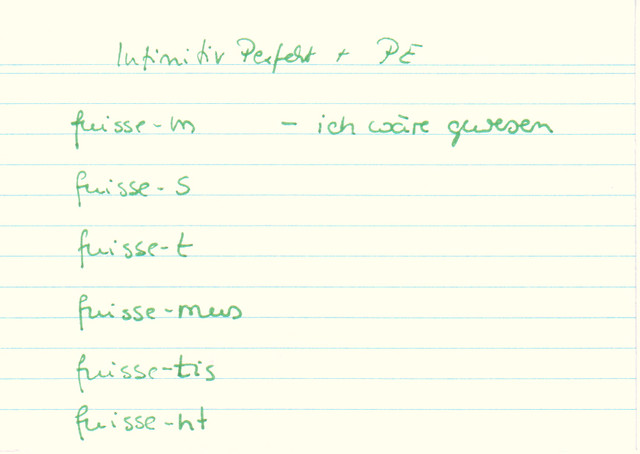 Infinitiv Perfekt + PE
fuisse-m - ich wäre gewesen
fuisse-s
fuisse-t
fuisse-mus
fuisse-tis
fuisse-nt